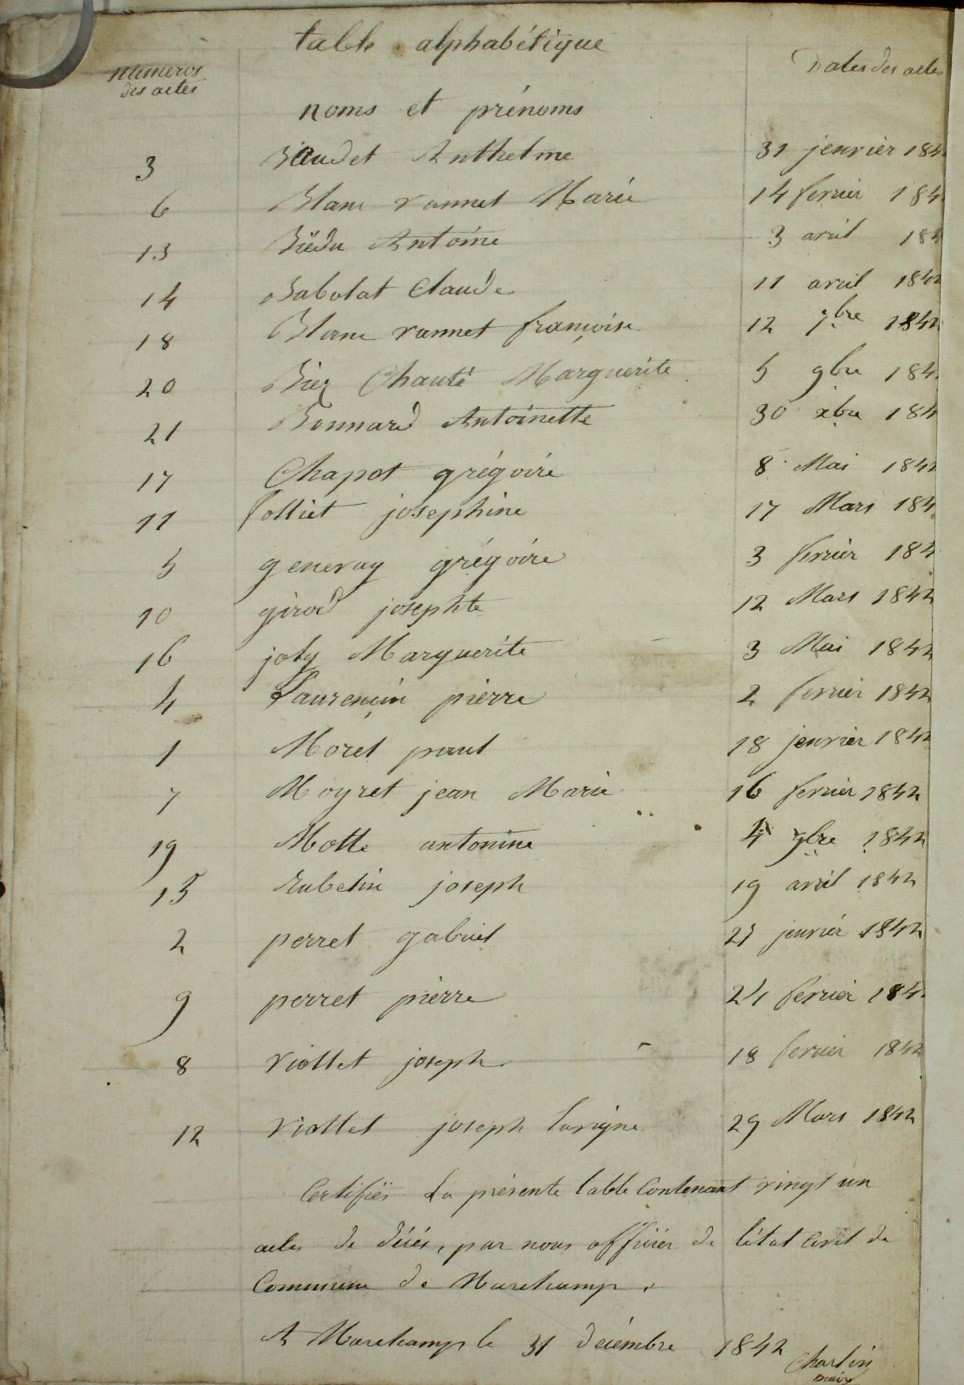 table alphabétique
numeros des actes
noms et prénoms
Dates des actes
3 Baudet Anthelme 31 jenvier 184
6 Blanc vannet Marie 14 fevrier 184
13 Biédu Antoine 3 avril 184
14 Babolat Claude 11 avril 1842
18 Blanc vannet françoise 12 7bre 1842
20 Biez Chanté Marguerite 5 9bre 184
21 Bonnard Antoinette 30 xbre 184
17 Chapot grégoire 8 Mai 1842
11 folliet josephine 17 Mars 184
5 genevay grégoire 3 fevrier 184
10 girod josephte 12 Mars 1842
16 joly Marguerite 3 Mai 1842
4 Laurençin pierre 2 fevrier 1842
1 Moret paul 18 jenvier 1842
7 Moyret jean Marie 16 fevrier 1842
19 Motte antonine 4 9bre 1842
15 Rubelin joseph 19 avril 1842
2 perret gabriel 21 jenviér 1842
9 perret pierre 24 fevrier 184
8 viollet joseph 18 fevrier 1842
12 viollet joseph lavigne 29 Mars 1842
Certifiés la présente table Contenant vingt un
actes de décés, par nous officier de l'état Civil de
Commune de Marchamp.
A Marchamp le 31 décémbre 1842
Charlin
maire